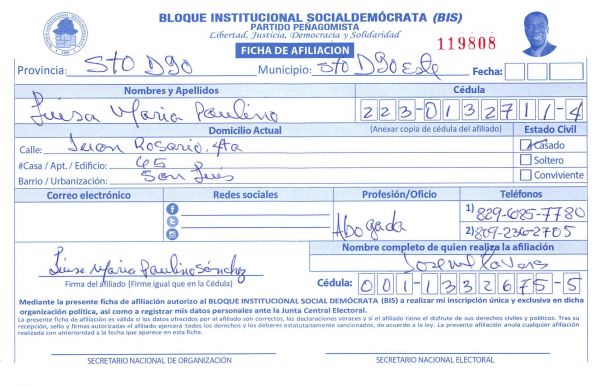 BLOQUE INSTITUCIONAL SOCIALDEMÓCRATA (BIS)
PARTIDO PEÑAGOMISTA
Libertad, Justicia, Democracia y Solidaridad
FICHA DE AFILIACION
119808
Provincia: Sto Dgo Municipio: Sto Dgo Este Fecha:
Nombres y Apellidos Cédula
Luisa Maria Paulino 223-0132711-4
Domicilio Actual (Anexar copia de cédula del afiliado) Estado Civil
Calle: Juan Rosario. 4ta Casado
#Casa / Apt. / Edificio: 45 Soltero
Barrio / Urbanización: San Luis Conviviente
Correo electrónico Redes sociales Profesión/Oficio Teléfonos
Abogada 1) 829-685-7780
2) 809-236-2705
Nombre completo de quien realiza la afiliación
Luisa Maria Paulino Sánchez
Firma del afiliado (Firme igual que en la Cédula) Cédula: 001-1332675-5
Mediante la presente ficha de afiliación autorizo al BLOQUE INSTITUCIONAL SOCIAL DEMÓCRATA (BIS) a realizar mi inscripción única y exclusiva en dicha
organización política, así como a registrar mis datos personales ante la Junta Central Electoral.
La presente ficha de afiliación es válida si los datos ofrecidos por el afiliado son correctos, las declaraciones veraces y si el afiliado tiene el disfrute de sus derechos civiles y políticos. Tras su
recepción, sello y firmas autorizadas el afiliado ejercerá todos los derechos y los deberes estatutariamente sancionados, de acuerdo a la ley. La presente afiliación anula cualquier afiliación
realizada con anterioridad a la fecha que aparece en esta ficha.
SECRETARIO NACIONAL DE ORGANIZACIÓN SECRETARIO NACIONAL ELECTORAL